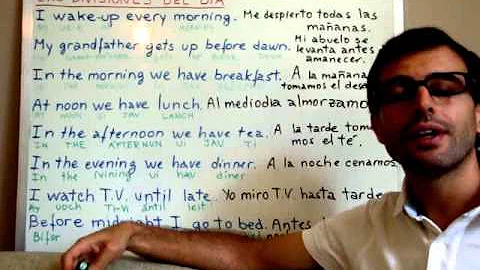 LAS DIVISIONES DEL DIA
I wake-up every morning. Me despierto todas las
mañanas.
My grandfather gets up before dawn. Mi abuelo se
levanta antes
amanecer.
In the morning we have breakfast. A la mañana
tomamos el
At noon we have lunch. Al mediodia almorzamo
AT NUUN UI JAV LANCH
In the afternoon we have tea. A la tarde
mos el té.
IN THE AFTERNUN UI JAV TI
In the evening we have dinner. A la noche cenamos.
In the ivining ui hav diner
I watch T.V. until late. Yo miro T.V. hasta tarde
Ay uoch Ti-Vi antil leit
Before midnight I go to bed. Antes
Bifor